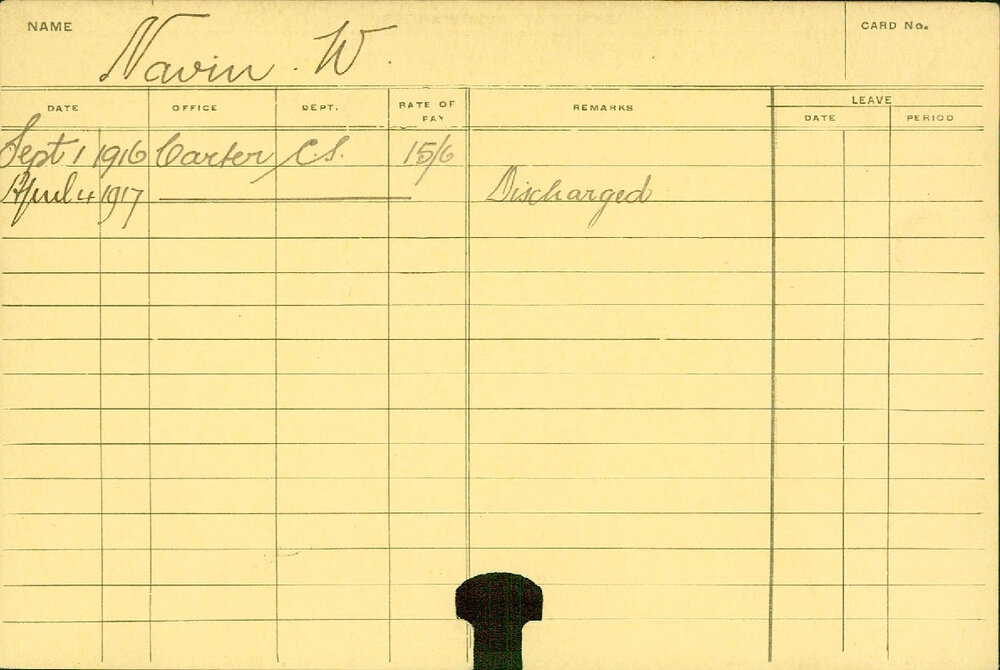 NAME Navin. W. CARD No.
DATE OFFICE DEPT. RATE OF PAY REMARKS LEAVE
DATE PERIOD
Sept 1 1916 Carter CS. 15/6
April 4 1917 Discharged